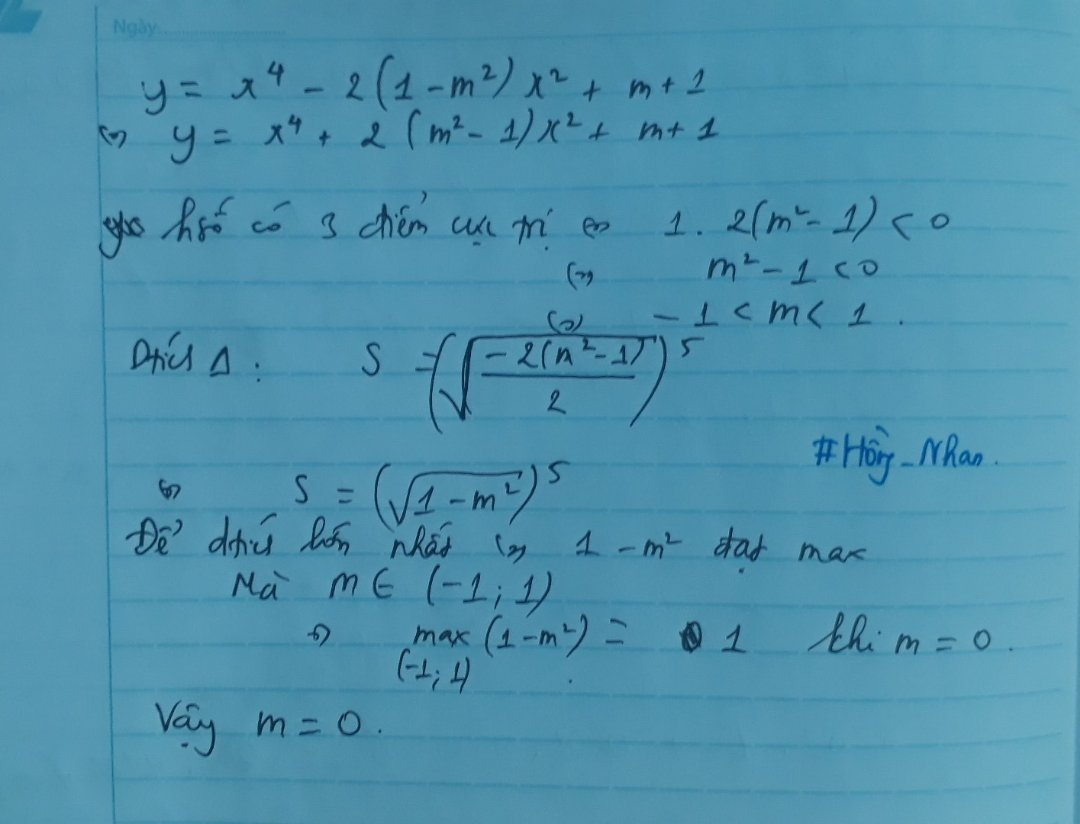 Ngày
y = x⁴ - 2(1-m²)x² + m+1
(=) y = x⁴ + 2(m²-1)x² + m+1
hsố có 3 điểm cực trị (=) 1. 2(m²-1) < 0
(=) m²-1 < 0
(=) -1 < m < 1.
Dtích Δ: S = (√(-2(m²-1)/2))⁵
#Hồng_Nhan.
(=) S = (√(1-m²))⁵
Để dtích lớn nhất (=) 1-m² đạt max
Mà m ∈ (-1; 1)
(=) max (1-m²) = 1 khi m = 0.
(-1; 1)
Vậy m = 0.